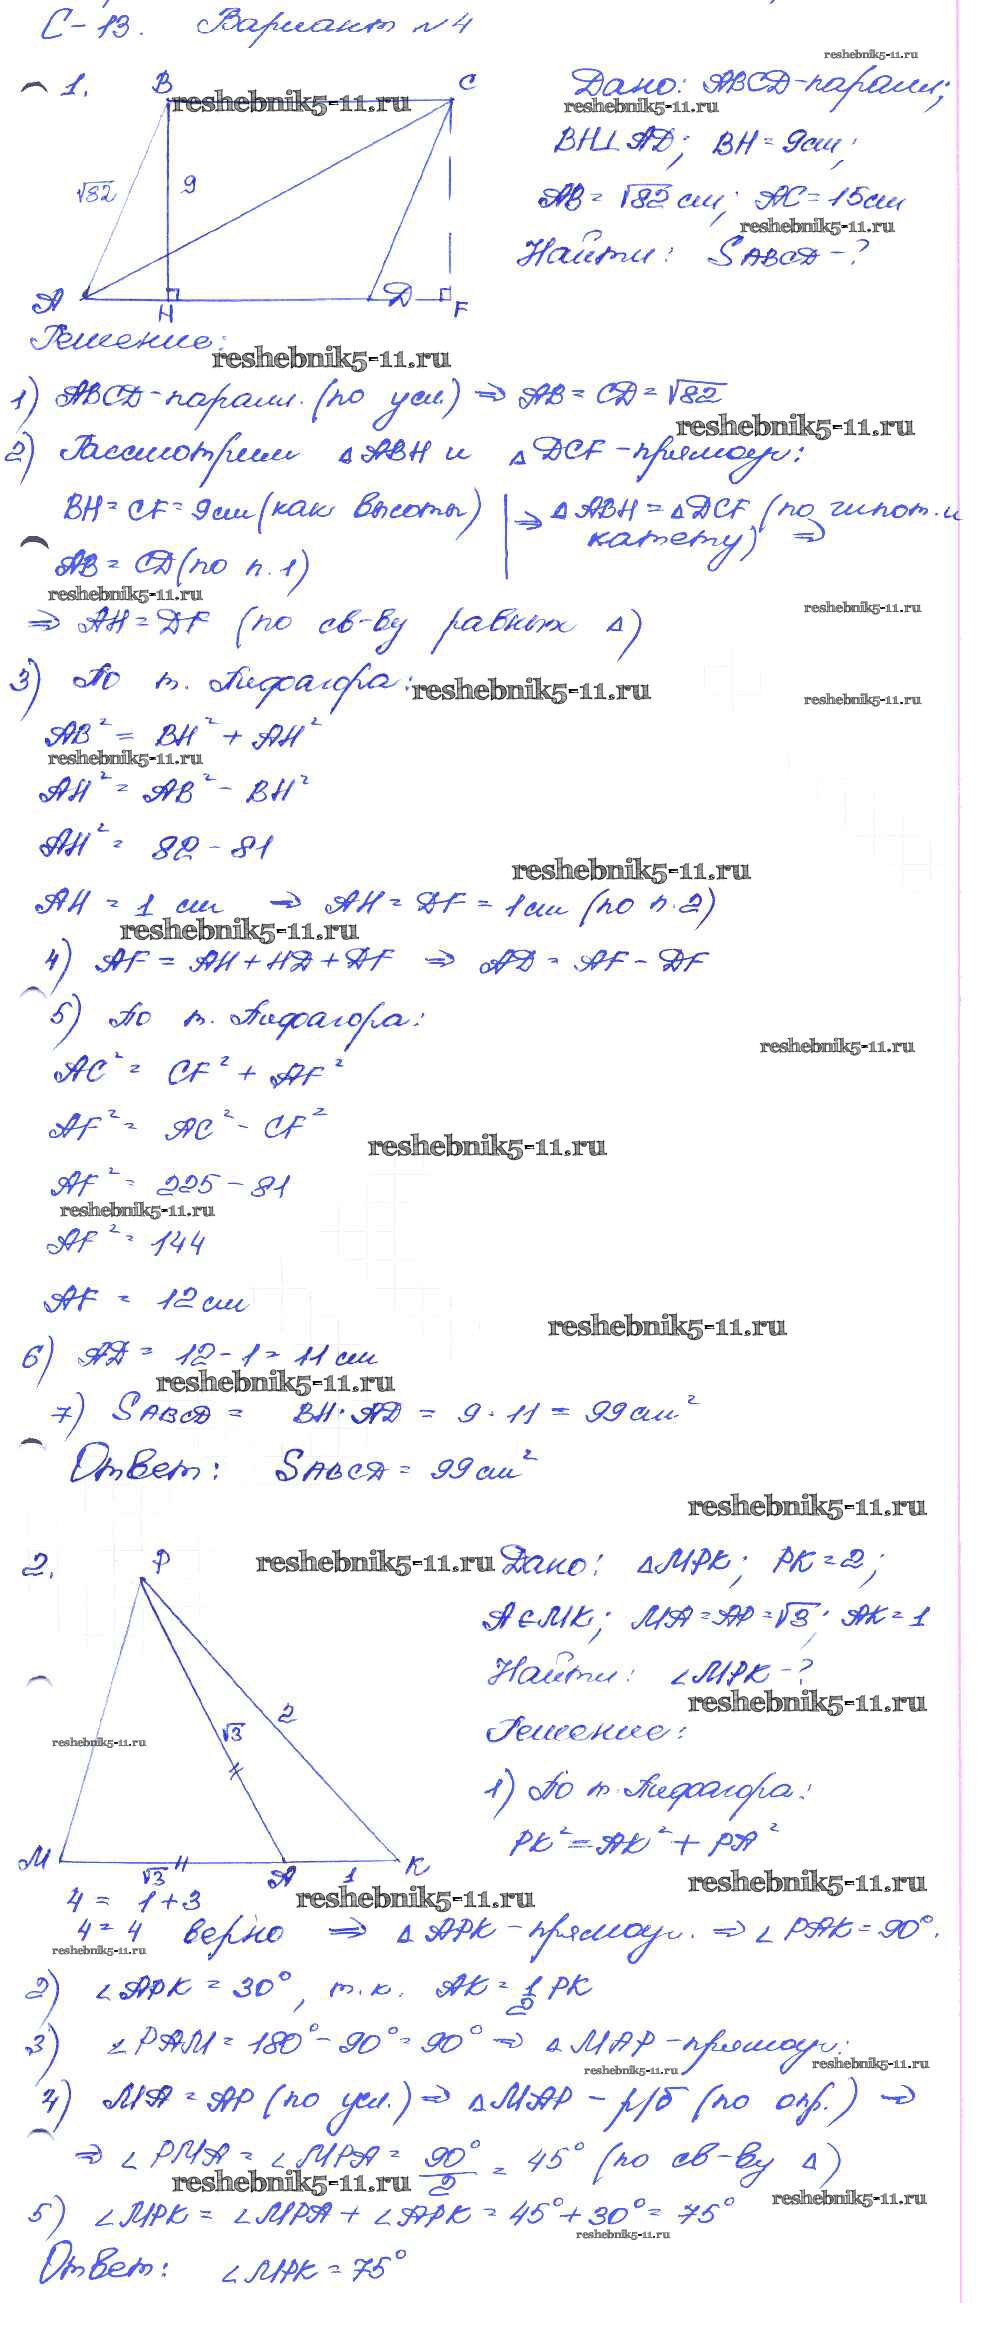 С-13. Вариант №4
reshebnik5-11.ru
1.
B
C
reshebnik5-11.ru
√82
9
A
H
D
F
Дано: ABCD-парал.;
reshebnik5-11.ru
BH⊥AD; BH=9см;
AB=√82 см; AC=15см
reshebnik5-11.ru
Найти: SABCD-?
Решение:
reshebnik5-11.ru
1) ABCD-парал. (по усл.) ⇒ AB=CD=√82
reshebnik5-11.ru
2) Рассмотрим △ABH и △DCF-прямоуг.:
BH=CF=9см (как высоты)
AB=CD (по п.1)
⇒ △ABH=△DCF (по гипот. и
катету) ⇒
reshebnik5-11.ru
reshebnik5-11.ru
⇒ AH=DF (по св-ву равных △)
3) По т. Пифагора:
reshebnik5-11.ru
reshebnik5-11.ru
AB²= BH²+AH²
reshebnik5-11.ru
AH²=AB²-BH²
AH²= 82-81
reshebnik5-11.ru
AH = 1 см ⇒ AH=DF=1см (по п.2)
reshebnik5-11.ru
4) AF=AH+HD+DF ⇒ AD=AF-DF
5) По т. Пифагора:
reshebnik5-11.ru
AC²= CF²+AF²
AF²= AC²-CF²
reshebnik5-11.ru
AF²= 225-81
reshebnik5-11.ru
AF²=144
AF = 12см
reshebnik5-11.ru
6) AD= 12-1=11 см
reshebnik5-11.ru
7) SABCD= BH·AD=9·11=99см²
Ответ: SABCD=99см²
reshebnik5-11.ru
2.
P
reshebnik5-11.ru
2
√3
reshebnik5-11.ru
M
√3
A
1
K
Дано: △MPK; PK=2;
A∈MK; MA=AP=√3; AK=1
Найти: ∠MPK-?
reshebnik5-11.ru
Решение:
1) По т. Пифагора:
PK²=AK²+PA²
reshebnik5-11.ru
reshebnik5-11.ru
4= 1+3
4=4 верно ⇒ △APK-прямоуг. ⇒ ∠PAK=90°.
reshebnik5-11.ru
2) ∠APK=30°, т.к. AK=1/2 PK
3) ∠PAM=180°-90°=90° ⇒ △MAP-прямоуг.:
reshebnik5-11.ru
reshebnik5-11.ru
4) MA=AP (по усл.) ⇒ △MAP-р/б (по опр.) ⇒
⇒ ∠PMA=∠MPA=90°/2=45° (по св-ву △)
reshebnik5-11.ru
reshebnik5-11.ru
5) ∠MPK=∠MPA+∠APK=45°+30°=75°
reshebnik5-11.ru
Ответ: ∠MPK=75°